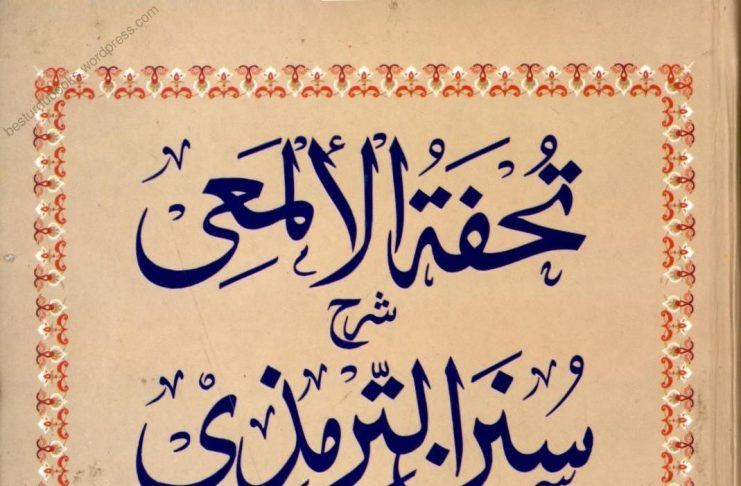 besturdubooks.wordpress.com
تُحفَةُ الأَلمَعِی
شرح
سُنَنُ التِّرمِذِیْ